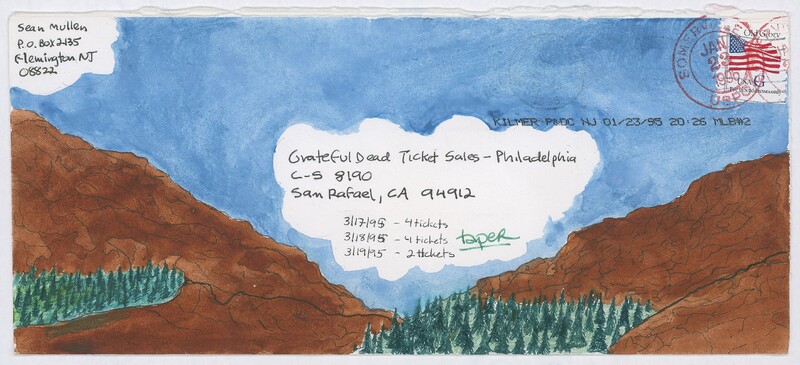 Sean Mullen
P.O. Box 2435
Flemington NJ
08822
Old Glory
USA G
KILMER P&DC NJ 01/23/95 20:26 MLB#2
Grateful Dead Ticket Sales - Philadelphia
C-S 8190
San Rafael, CA 94912
3/17/95 - 4 tickets
3/18/95 - 4 tickets taper
3/19/95 - 2 tickets